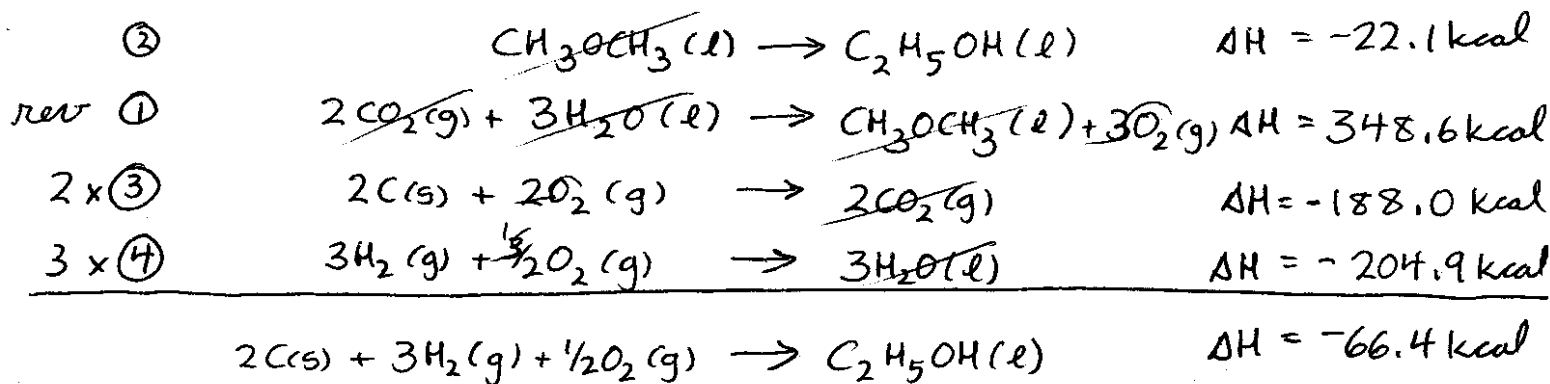 ② CH₃OCH₃(l) → C₂H₅OH(l) ΔH = -22.1 kcal
rev ① 2CO₂(g) + 3H₂O(l) → CH₃OCH₃(l) + 3O₂(g) ΔH = 348.6 kcal
2 x ③ 2C(s) + 2O₂(g) → 2CO₂(g) ΔH = -188.0 kcal
3 x ④ 3H₂(g) + 3/2O₂(g) → 3H₂O(l) ΔH = -204.9 kcal
2C(s) + 3H₂(g) + 1/2O₂(g) → C₂H₅OH(l) ΔH = -66.4 kcal